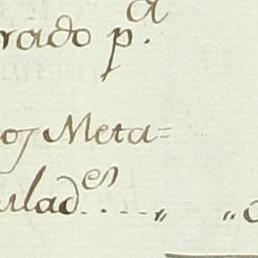 rado p.a
os Meta=
ulad.es....„ „